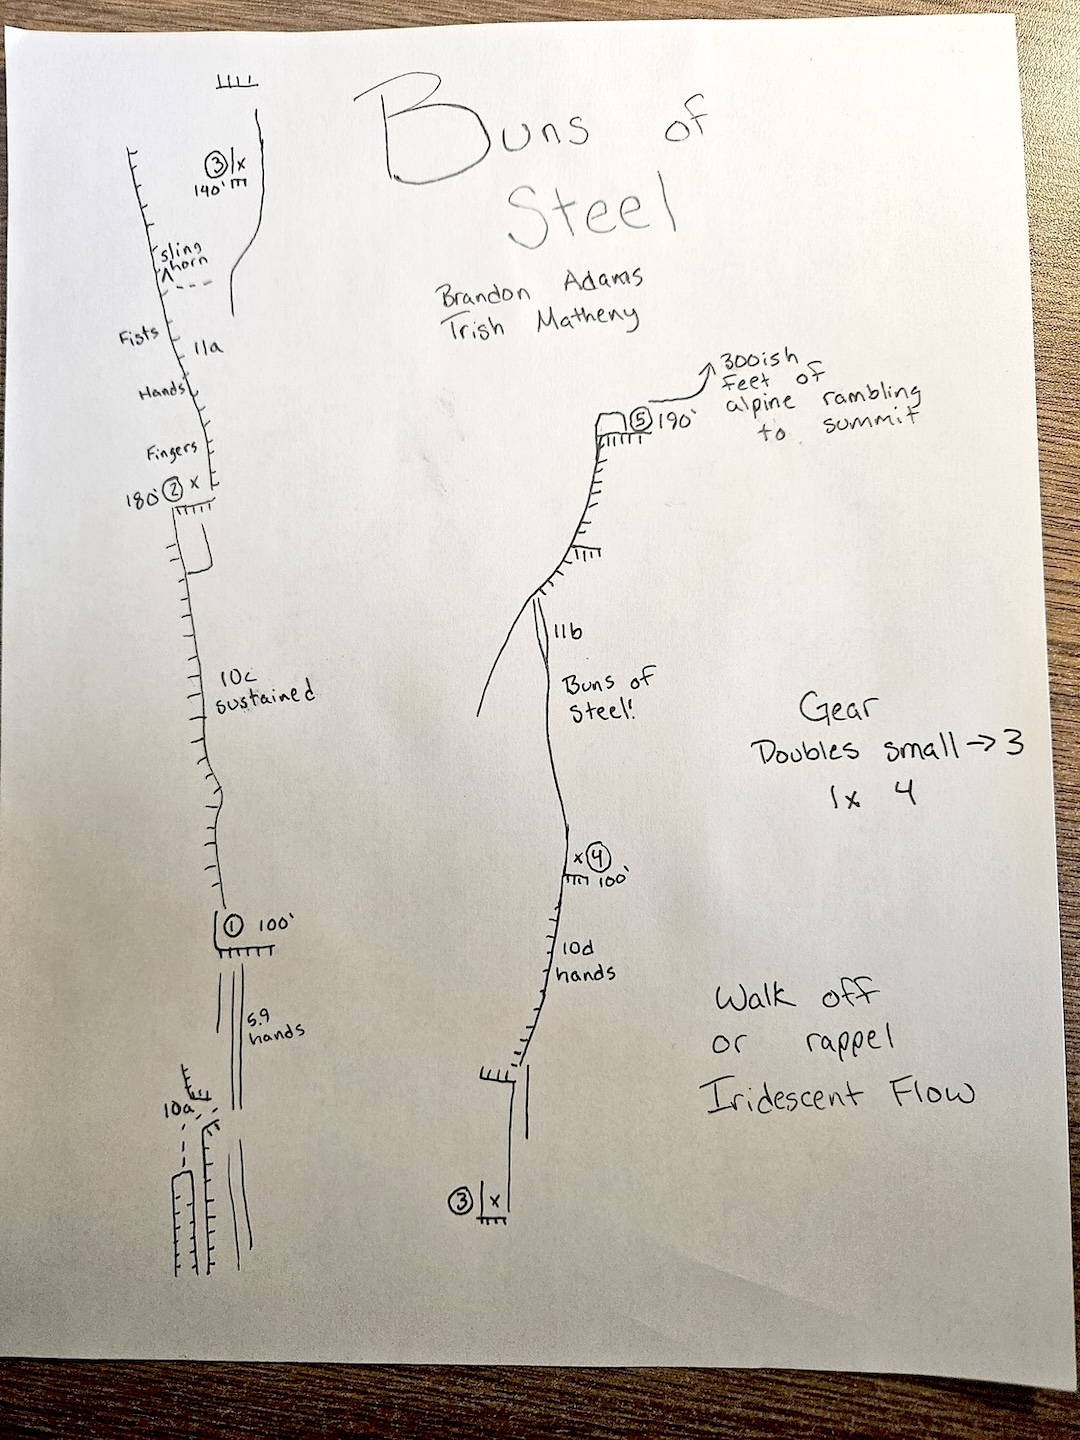 Buns of
Steel
Brandon Adams
Trish Matheny
3 x
140'
sling
horn
Fists
11a
Hands
Fingers
180' 2 x
10c
sustained
1 100'
5.9
hands
10a
300ish
feet of
alpine rambling
to summit
5 190'
11b
Buns of
Steel!
x 4
100'
10d
hands
3 x
Gear
Doubles small → 3
1x 4
Walk off
or rappel
Iridescent Flow